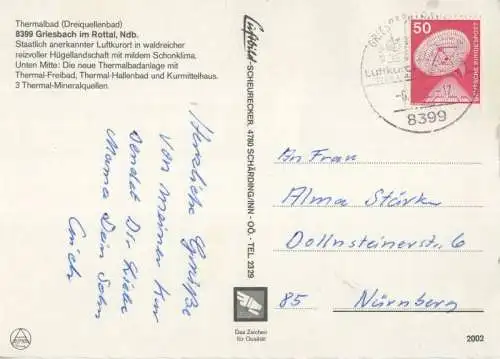 Thermalbad (Dreiquellenbad)
8399 Griesbach im Rottal, Ndb.
Staatlich anerkannter Luftkurort in waldreicher
reizvoller Hügellandschaft mit mildem Schonklima.
Unten Mitte: Die neue Thermalbadanlage mit
Thermal-Freibad, Thermal-Hallenbad und Kurmittelhaus.
3 Thermal-Mineralquellen.
Herzliche Grüße
von meiner Kur
sendet Dir liebe
Mama Dein Sohn
Erich
Luftbild-SCHEURECKER, 4780 SCHÄRDING/INN - OÖ. - TEL. 2329
Das Zeichen
für Qualität
50
DEUTSCHE BUNDESPOST
Luftkurort
8399
An Frau
Alma Stark
Dollnsteinerstr. 6
85 Nürnberg
2002